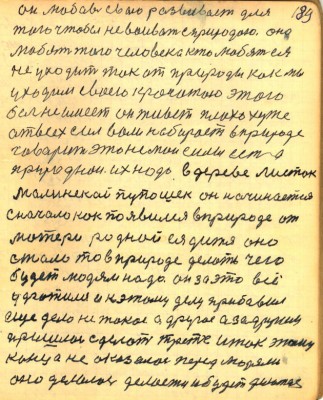 он любовь свою развивает для 189
того чтобы не воиват с природаю. она
любят того человека кто любят ся
не уходит так от природы как мы
уходим своею красотою этого
бог не имеет он живет плохо хуже
от всех сил вом набирает в природе
гаварит это не мои силы есть а
природной их надо. в дереве листок
маленькой пупошек он начинается
сначало как появился в природе от
матери родной ся дитя оно
стало то в природе делать чего
будет людям надо. он за это всё
ухротили и к этому делу прибавил
еще дело не такое а другое а за другим
пришлос сделать третье и так этому
конца не оказалос перед людями
оно делалос делаеться и будет